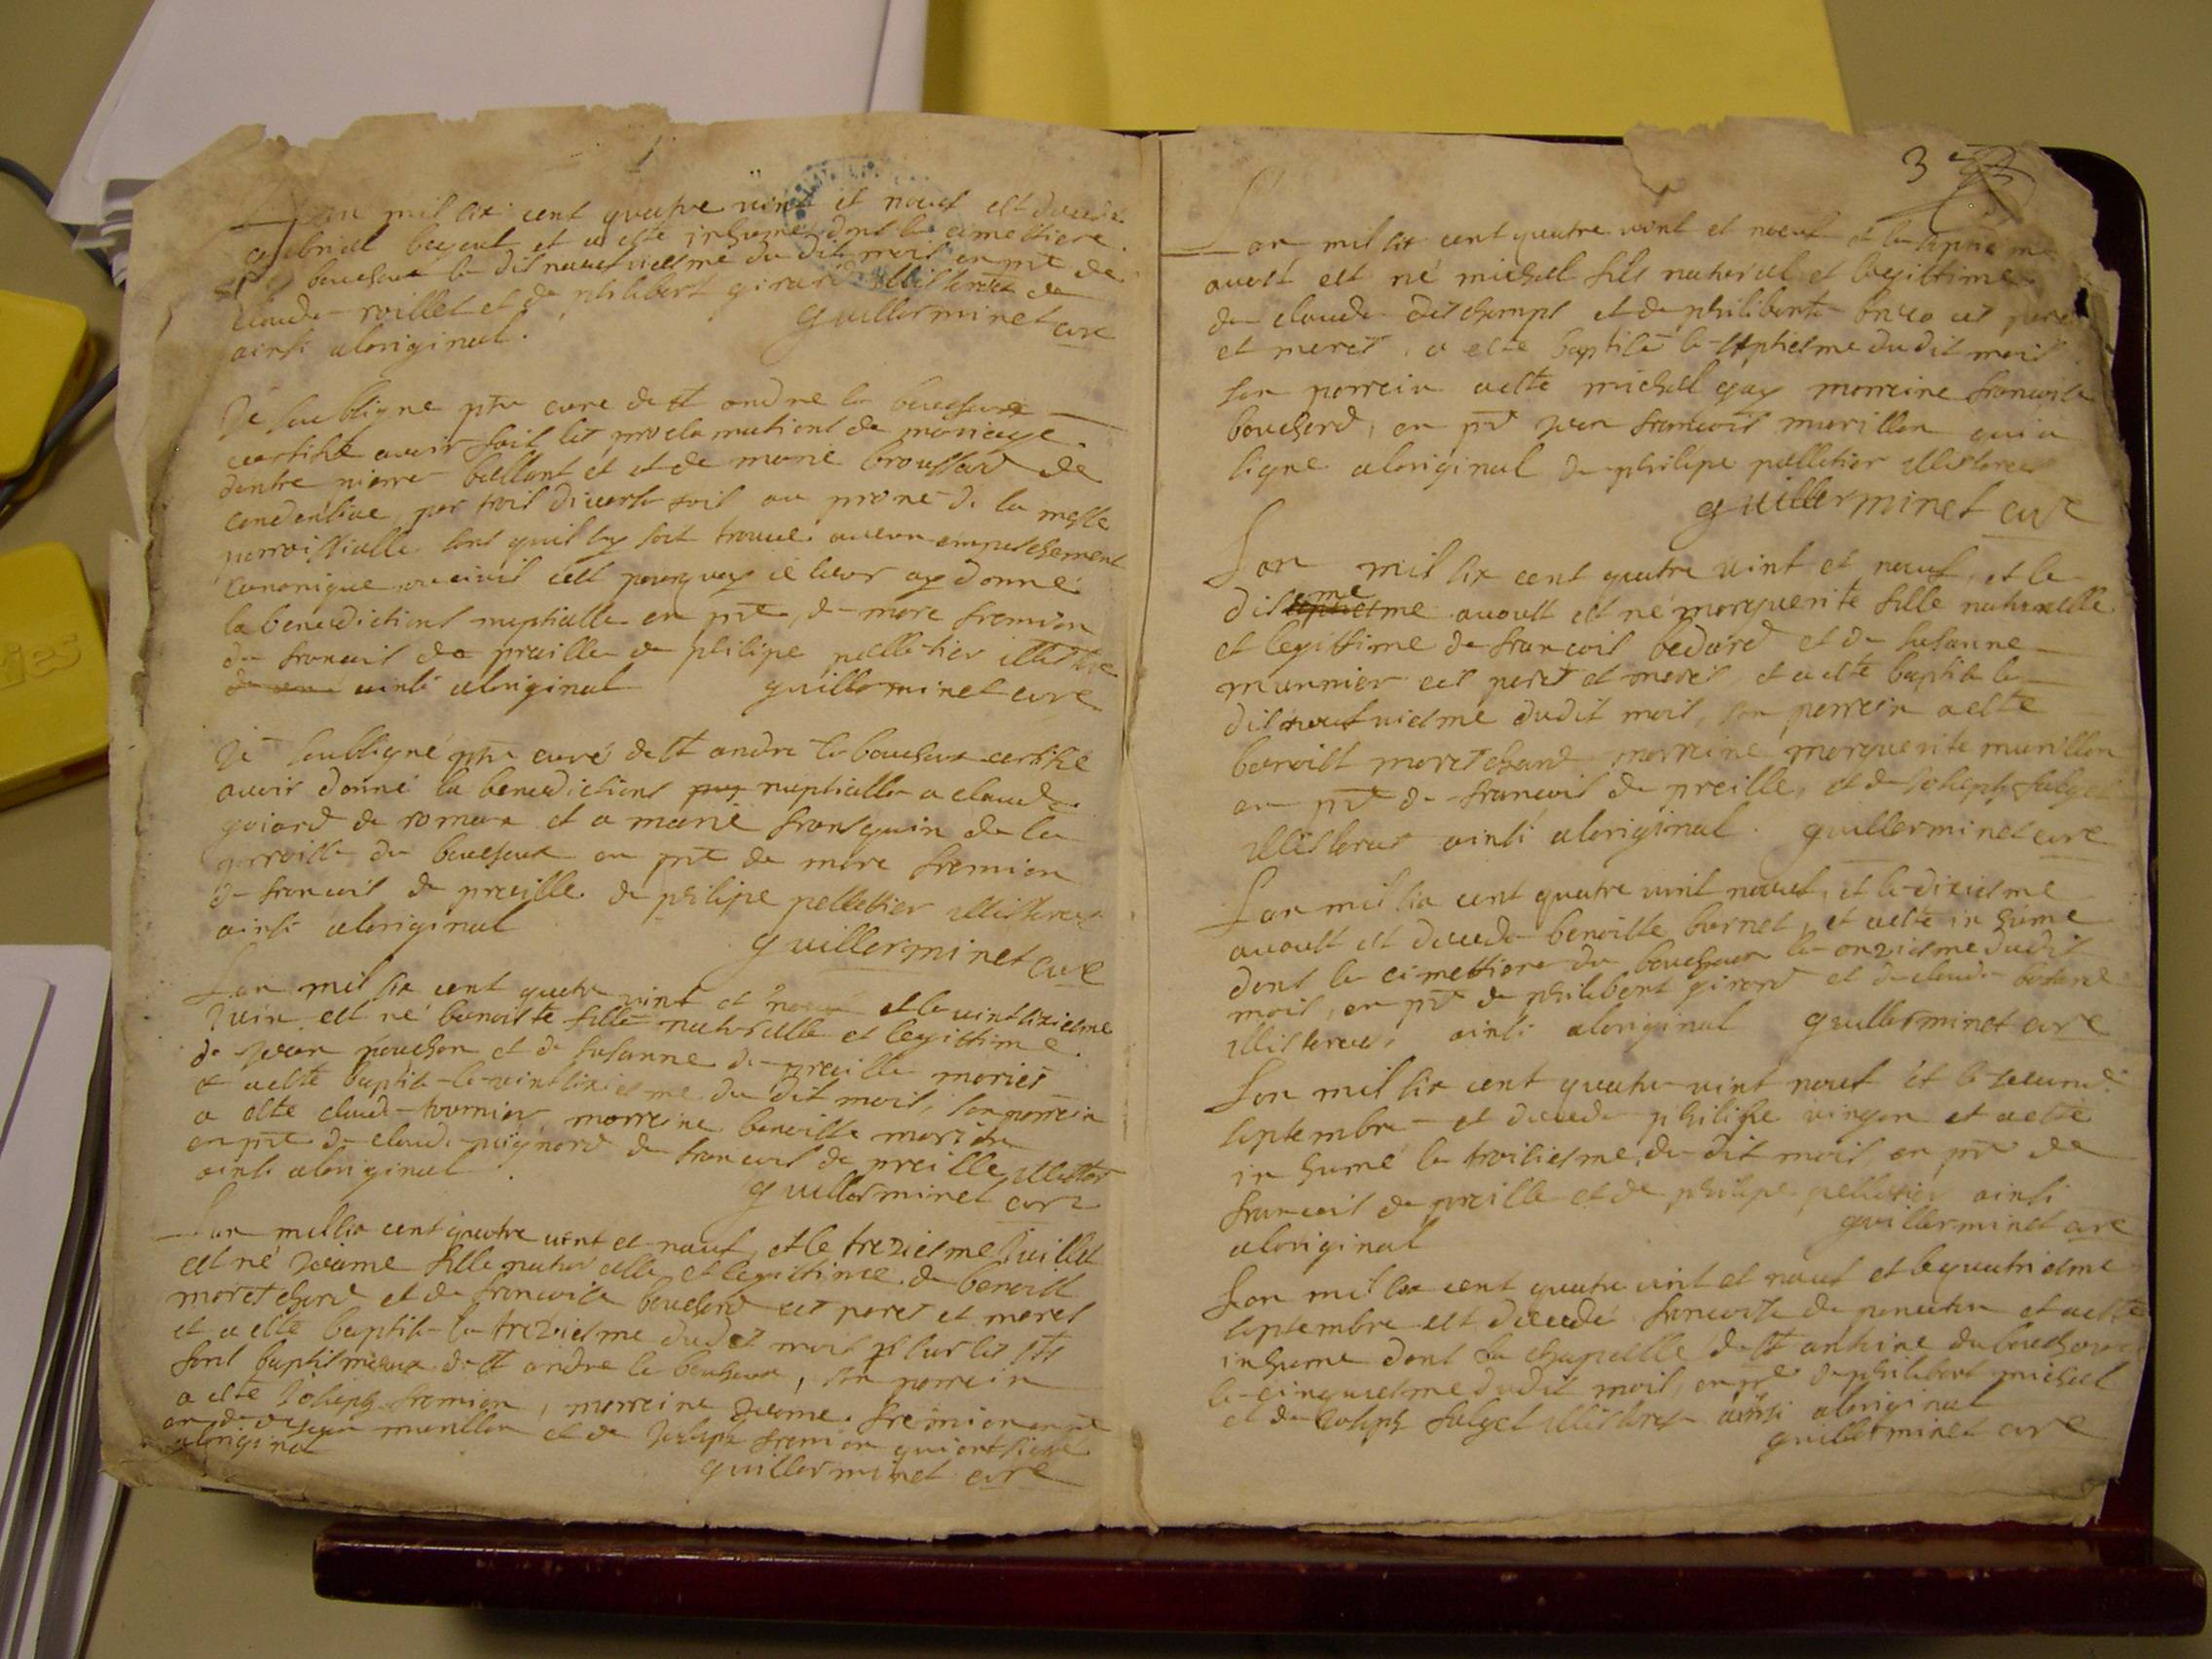 Lan mil six cent quatre vint et neuf est decede
gabriel et a este inhume dans le cimettiere
bouchoux le dit neufviesme du dit mois en pnt de
claude roillet et de philibert girard illisterez de
ainsi aloriginal. guillerminet cure
Je soubsigne ptre cure de st andre le bouchoux
certifie avoir fait les proclamations de mariage
dentre pierre ballant et et de marie broussard de
condeissiae par trois divers fois au prone de la messe
parroissialle sans quil sy soit trouve aucun empeschement
canonique ou civil cest pourquoy ie leur ay donne
la benedictions nuptialle en pnt de marc fremion
de francois de preille de philipe pelletier illistere
ainsi aloriginal guillerminet cure
Je soubsigné ptre curé de st andre le bouchoux certifie
avoir donné la benedictions nuptialle a claude
goiard de romans et a marie fransquin de la
parroisse du bouchoux en pnt de marc fremion
de francois de preille de philipe pelletier illisterez
ainsi aloriginal guillerminet cure
Lan mil six cent quatre vint et neuf et le vintsixiesme
Juin est né benoiste fille naturelle et legittime
de jean pauchon et de susanne de preille mariés
et a este baptise le vintsixiesme du dit mois, son parrein
a este claude tournier marreine benoiste
en pnt de claude poignard de francois de preille illister
ainsi aloriginal guillerminet cure
Lan mil six cent quatre vint et neuf, et le treziesme Juillet
est né jeanne fille naturelle et legittime de benoist
moretchard et de francoise bouchard ses peres et meres
et a este baptise le treziesme dudit mois sur les sts
fons baptismaux de st andre le bouchoux, son parrein
a este Joseph fremion, marreine jeanne fremion en pnt
de jean murillon et de Joseph fremion qui ont signe
aloriginal guillerminet cure
3
Lan mil six cent quatre vint et neuf et le septieme
aoust est né michel fils naturel et legittime
de claude deschamps et de philiberte ses peres
et meres, a este baptisé le septiesme du dit mois
son parrein a este michel gay marreine francoise
bouchard, en pnt jean francois murillon qui a
signe aloriginal de philipe pelletier illisteres
guillerminet cure
Lan mil six cent quatre vint et neuf, et le
aoust est né marguerite fille naturelle
et legittime de francois bedard et de susanne
munnier ses peres et meres, et a este baptise le
dixneufviesme dudit mois, son parrein a este
benoist moretchard marreine marguerite murillon
en pnt de francois de preille, et de Joseph falget
illisterez ainsi aloriginal. guillerminet cure
Lan mil six cent quatre vint neuf, et le dixiesme
aoust est decede benoiste burnet, et a este inhume
dans le cimettiere du bouchoux le onziesme dudit
mois, en pnt de philibert girard et de claude
illisteres, ainsi aloriginal guillerminet cure
Lan mil six cent quatre vint neuf et le second
septembre et decede philipe vingon et a este
inhumé le troisiesme du dit mois, en pnt de
francois de preille et de philipe pelletier ainsi
aloriginal guillerminet cure
Lan mil six cent quatre vint et neuf et le quatriesme
septembre est decedé francoise de et a este
inhume dans la chapelle de st anthine du bouchoux
le cinquiesme dudit mois, en pnt de philibert michel
et de Joseph falget illisteres ainsi aloriginal
guillerminet cure